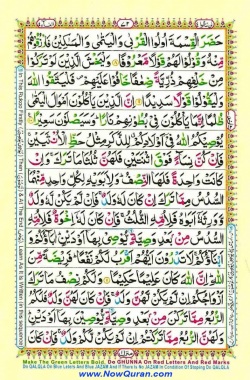 حَضَرَ الْقِسْمَةَ اُولُوا الْقُرْبٰى وَالْيَتٰمٰى وَالْمَسٰكِيْنُ فَارْزُقُوْهُمْ
مِّنْهُ وَقُوْلُوْا لَهُمْ قَوْلًا مَّعْرُوْفًا وَلْيَخْشَ الَّذِيْنَ لَوْ تَرَكُوْا
مِنْ خَلْفِهِمْ ذُرِّيَّةً ضِعٰفًا خَافُوْا عَلَيْهِمْ فَلْيَتَّقُوا اللّٰهَ
وَلْيَقُوْلُوْا قَوْلًا سَدِيْدًا اِنَّ الَّذِيْنَ يَاْكُلُوْنَ اَمْوَالَ الْيَتٰمٰى
ظُلْمًا اِنَّمَا يَاْكُلُوْنَ فِيْ بُطُوْنِهِمْ نَارًا وَسَيَصْلَوْنَ سَعِيْرًا
يُوْصِيْكُمُ اللّٰهُ فِيْ اَوْلَادِكُمْ لِلذَّكَرِ مِثْلُ حَظِّ الْاُنْثَيَيْنِ
فَاِنْ كُنَّ نِسَآءً فَوْقَ اثْنَتَيْنِ فَلَهُنَّ ثُلُثَا مَا تَرَكَ وَاِنْ
كَانَتْ وَاحِدَةً فَلَهَا النِّصْفُ وَلِاَبَوَيْهِ لِكُلِّ وَاحِدٍ مِّنْهُمَا
السُّدُسُ مِمَّا تَرَكَ اِنْ كَانَ لَهٗ وَلَدٌ فَاِنْ لَّمْ يَكُنْ لَّهٗ وَلَدٌ
وَّوَرِثَهٗٓ اَبَوٰهُ فَلِاُمِّهِ الثُّلُثُ فَاِنْ كَانَ لَهٗٓ اِخْوَةٌ فَلِاُمِّهِ
السُّدُسُ مِنْ بَعْدِ وَصِيَّةٍ يُّوْصِيْ بِهَآ اَوْ دَيْنٍ اٰبَآؤُكُمْ وَ
اَبْنَآؤُكُمْ لَا تَدْرُوْنَ اَيُّهُمْ اَقْرَبُ لَكُمْ نَفْعًا فَرِيْضَةً مِّنَ
اللّٰهِ اِنَّ اللّٰهَ كَانَ عَلِيْمًا حَكِيْمًا وَلَكُمْ نِصْفُ مَا تَرَكَ
اَزْوَاجُكُمْ اِنْ لَّمْ يَكُنْ لَّهُنَّ وَلَدٌ فَاِنْ كَانَ لَهُنَّ وَلَدٌ
فَلَكُمُ الرُّبُعُ مِمَّا تَرَكْنَ مِنْ بَعْدِ وَصِيَّةٍ يُّوْصِيْنَ بِهَآ اَوْ دَيْنٍ
وَلَهُنَّ الرُّبُعُ مِمَّا تَرَكْتُمْ اِنْ لَّمْ يَكُنْ لَّكُمْ وَلَدٌ فَاِنْ كَانَ
Make The Green Letters Bold, Do GHUNNA On Red Letters And Red Marks
Do QALQLA On Blue Letters And Blue JAZAM And If There Is No JAZAM In Condition Of Stoping Do QALQLA
www.NowQuran.com